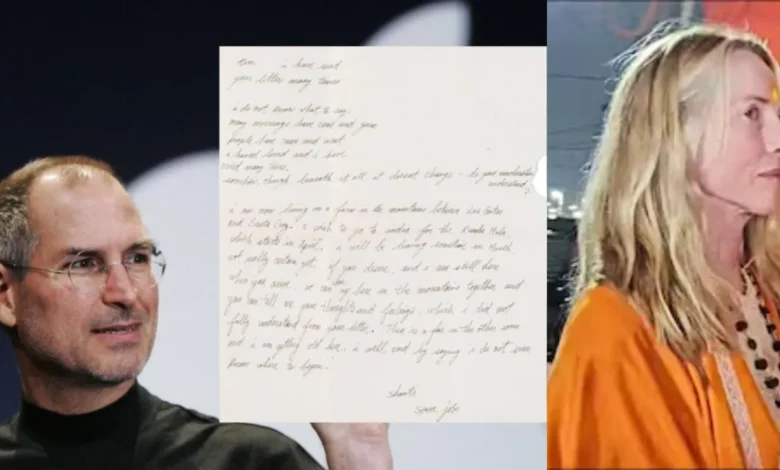 Tim i have read
your letter many times
i do not know what to say.
many mornings have come and gone
people have came and went
i have loved and i have
cried many times.
somehow, though beneath it all it doesnt change - do you
understand?
i am now living on a farm in the mountains between Los Gatos
and Santa Cruz. i wish to go to india for the Kumba Mela,
which starts in April. i will be leaving sometime in March
not really certain yet. if you desire, and i am still here
when you we can up here in the mountains together and
you can tell me your thoughts and feelings, which i did not
fully understand from your letter. There is a fire in the other room
and i am getting cold here. i will end by saying i do not even
know where to begin.
shanti
steve jobs